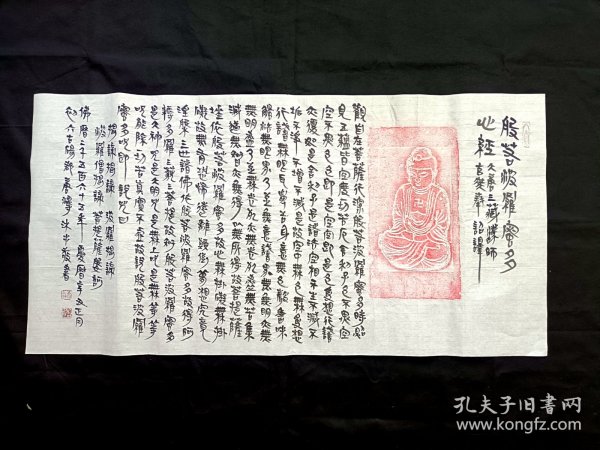 般若波羅蜜多
心經 大唐三藏法師
玄奘奉詔譯
觀自在菩薩行深般若波羅蜜多時照
見五蘊皆空度一切苦厄舍利子色不異空
空不異色色即是空空即是色受想行識
亦復如是舍利子是諸法空相不生不滅不
垢不淨不增不減是故空中無色無受想
行識無眼耳鼻舌身意無色聲香味
無明盡乃至無老死亦無老死盡無苦集
滅道無智亦無得以無所得故菩提薩
埵依般若波羅蜜多故心無罣礙無罣
礙故無有恐怖遠離顛倒夢想究竟
涅槃三世諸佛依般若波羅蜜多故得阿
耨多羅三藐三菩提故知般若波羅蜜多
是大神咒是大明咒是無上咒是無等等
咒能除一切苦真實不虛故說般若波羅
蜜多咒即說咒曰
揭諦揭諦 波羅揭諦
波羅僧揭諦 菩提薩婆訶
佛曆二千五百六十五年
孔夫子旧书网
www.kongfz.com